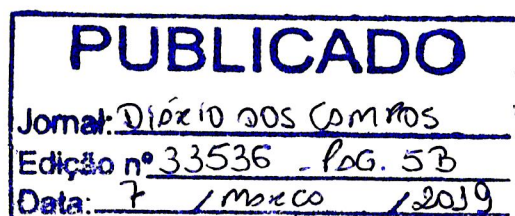 PUBLICADO
Jornal: DIÁRIO DOS CAMPOS
Edição nº 33536 - PÁG. 5B
Data: 7 / MARÇO / 2019